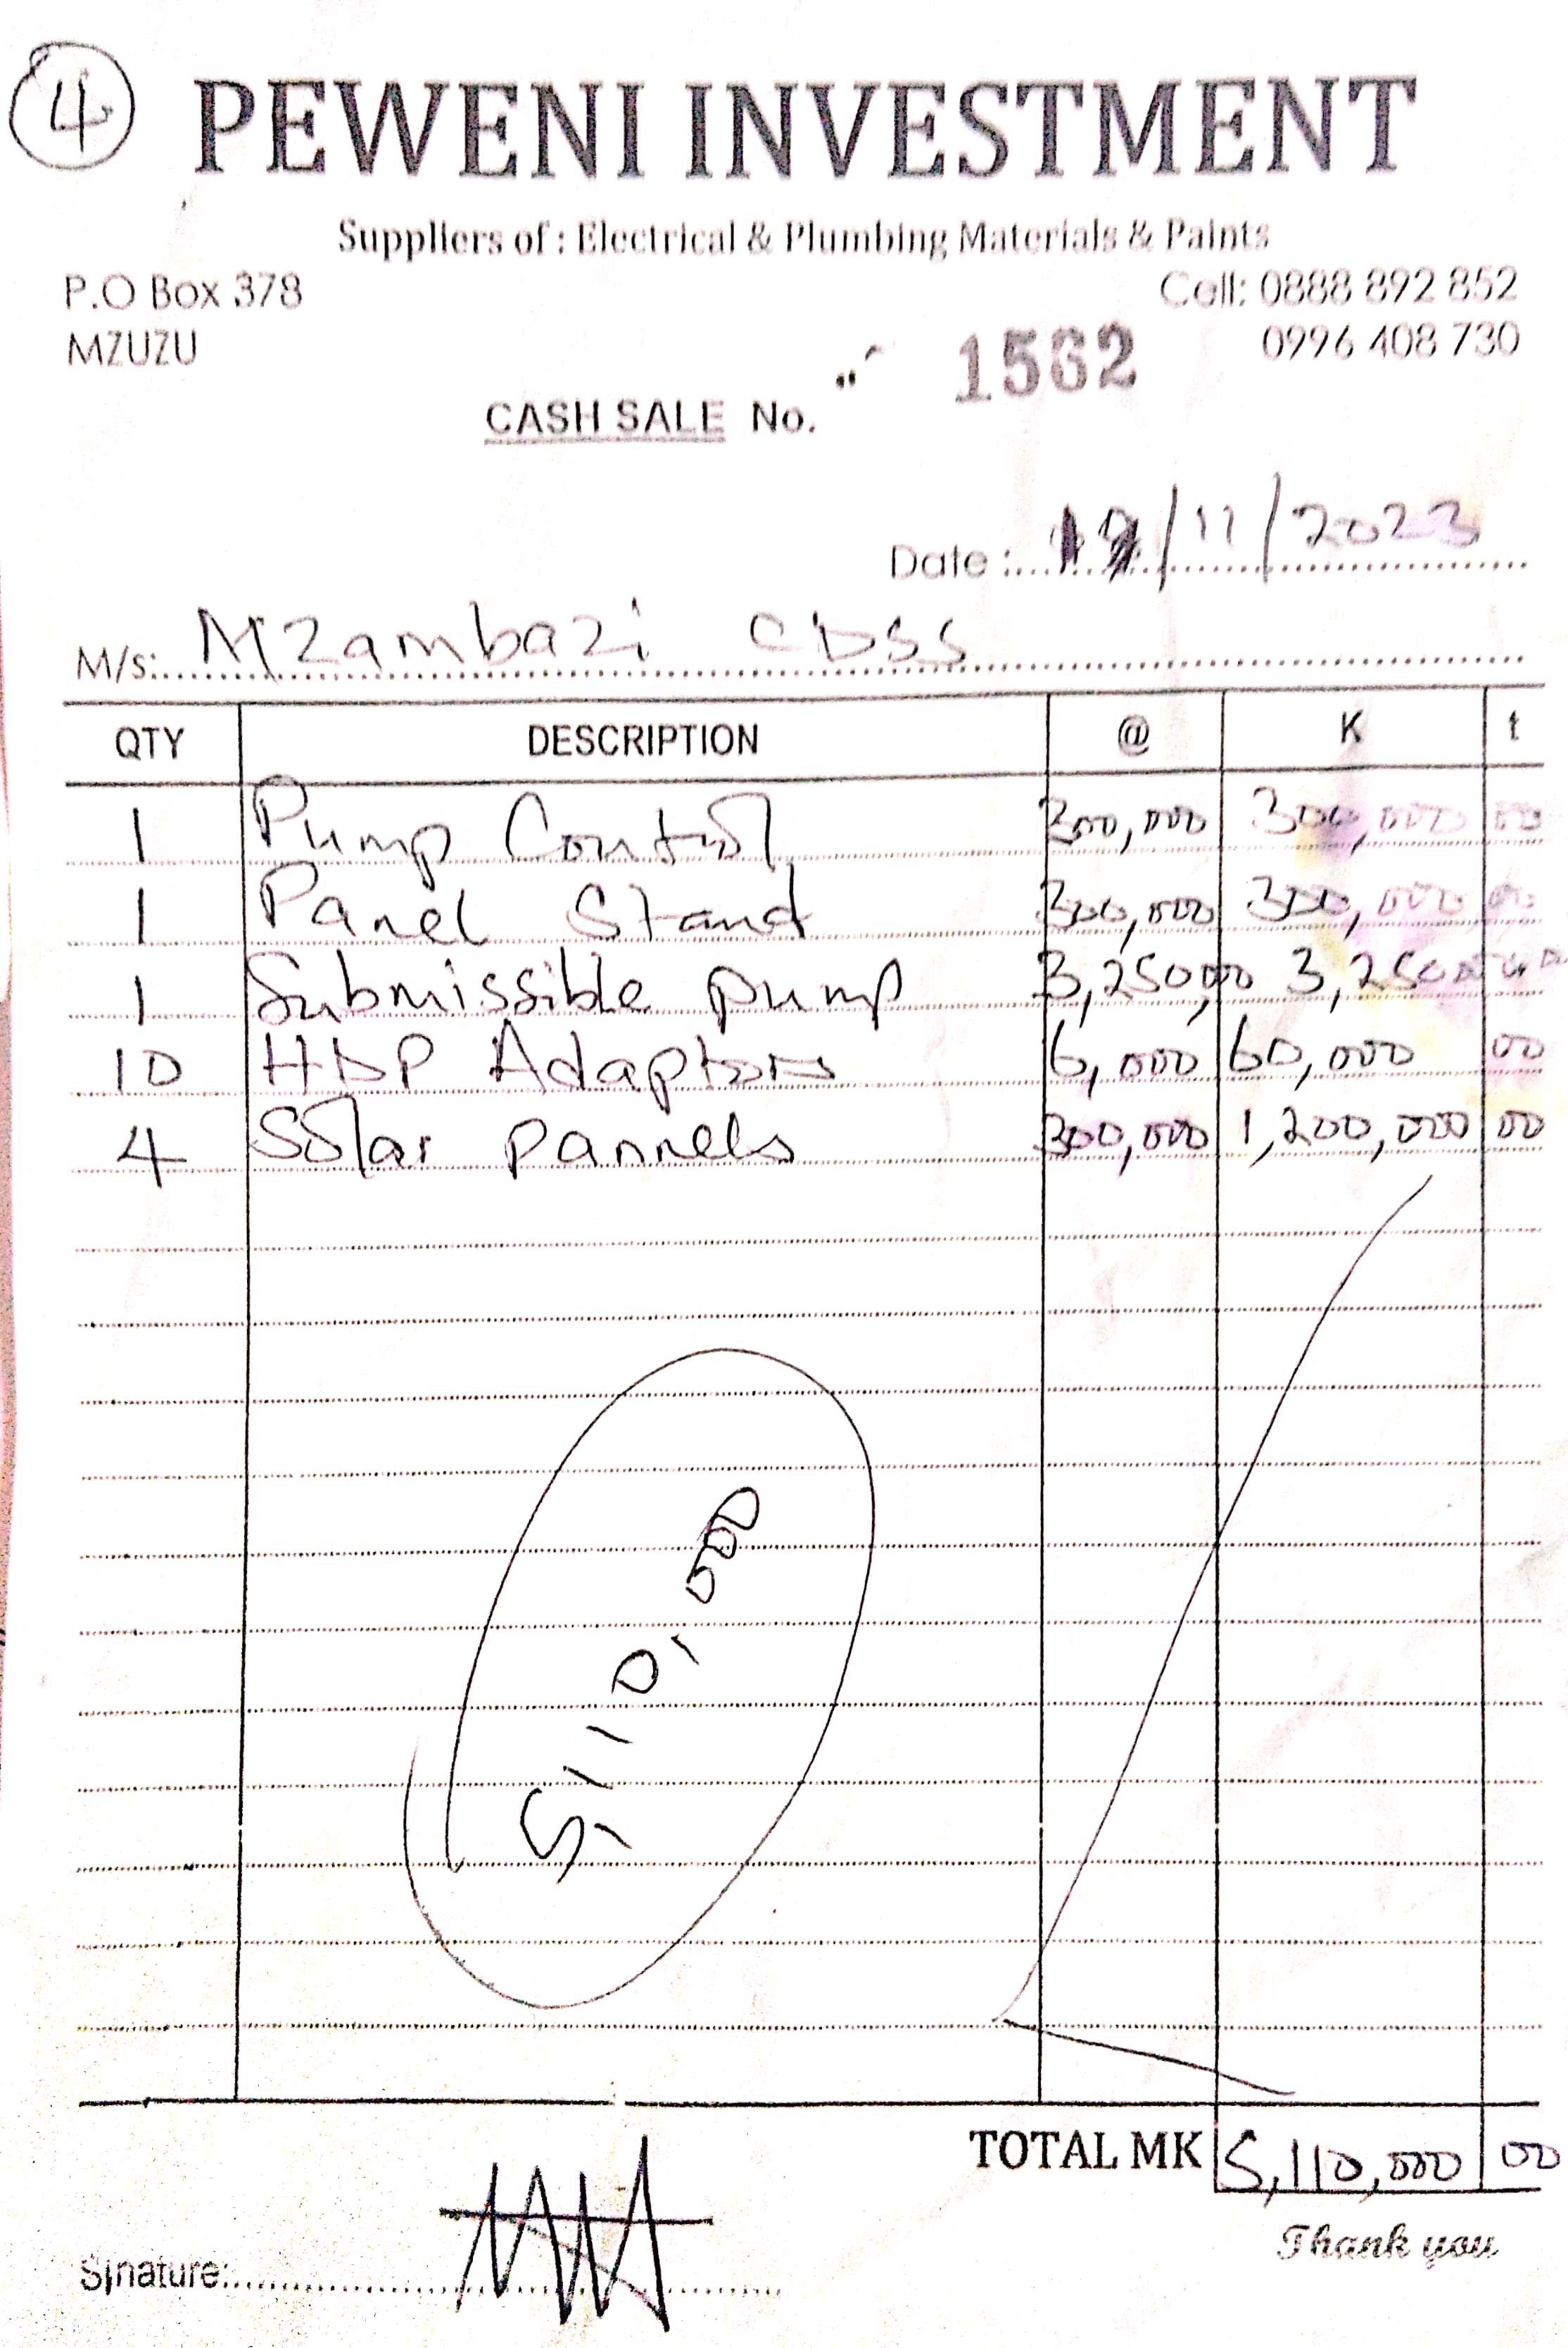 4
PEWENI INVESTMENT
Suppliers of : Electrical & Plumbing Materials & Paints
P.O Box 378 Cell: 0888 892 852
MZUZU 0996 408 730
CASH SALE No. 1562
Date : /11/2023
M/s: Mzambazi CDSS
QTY DESCRIPTION @ K t
1 Pump Control 300,000 300,000 00
1 Panel Stand 300,000 300,000 00
1 Submissible pump 3,250,00 3,250
10 HDP Adaptors 6,000 60,000 00
4 Solar pannels 300,000 1,200,000 00
5,110,000
TOTAL MK 5,110,000 00
Thank you
Sinature: